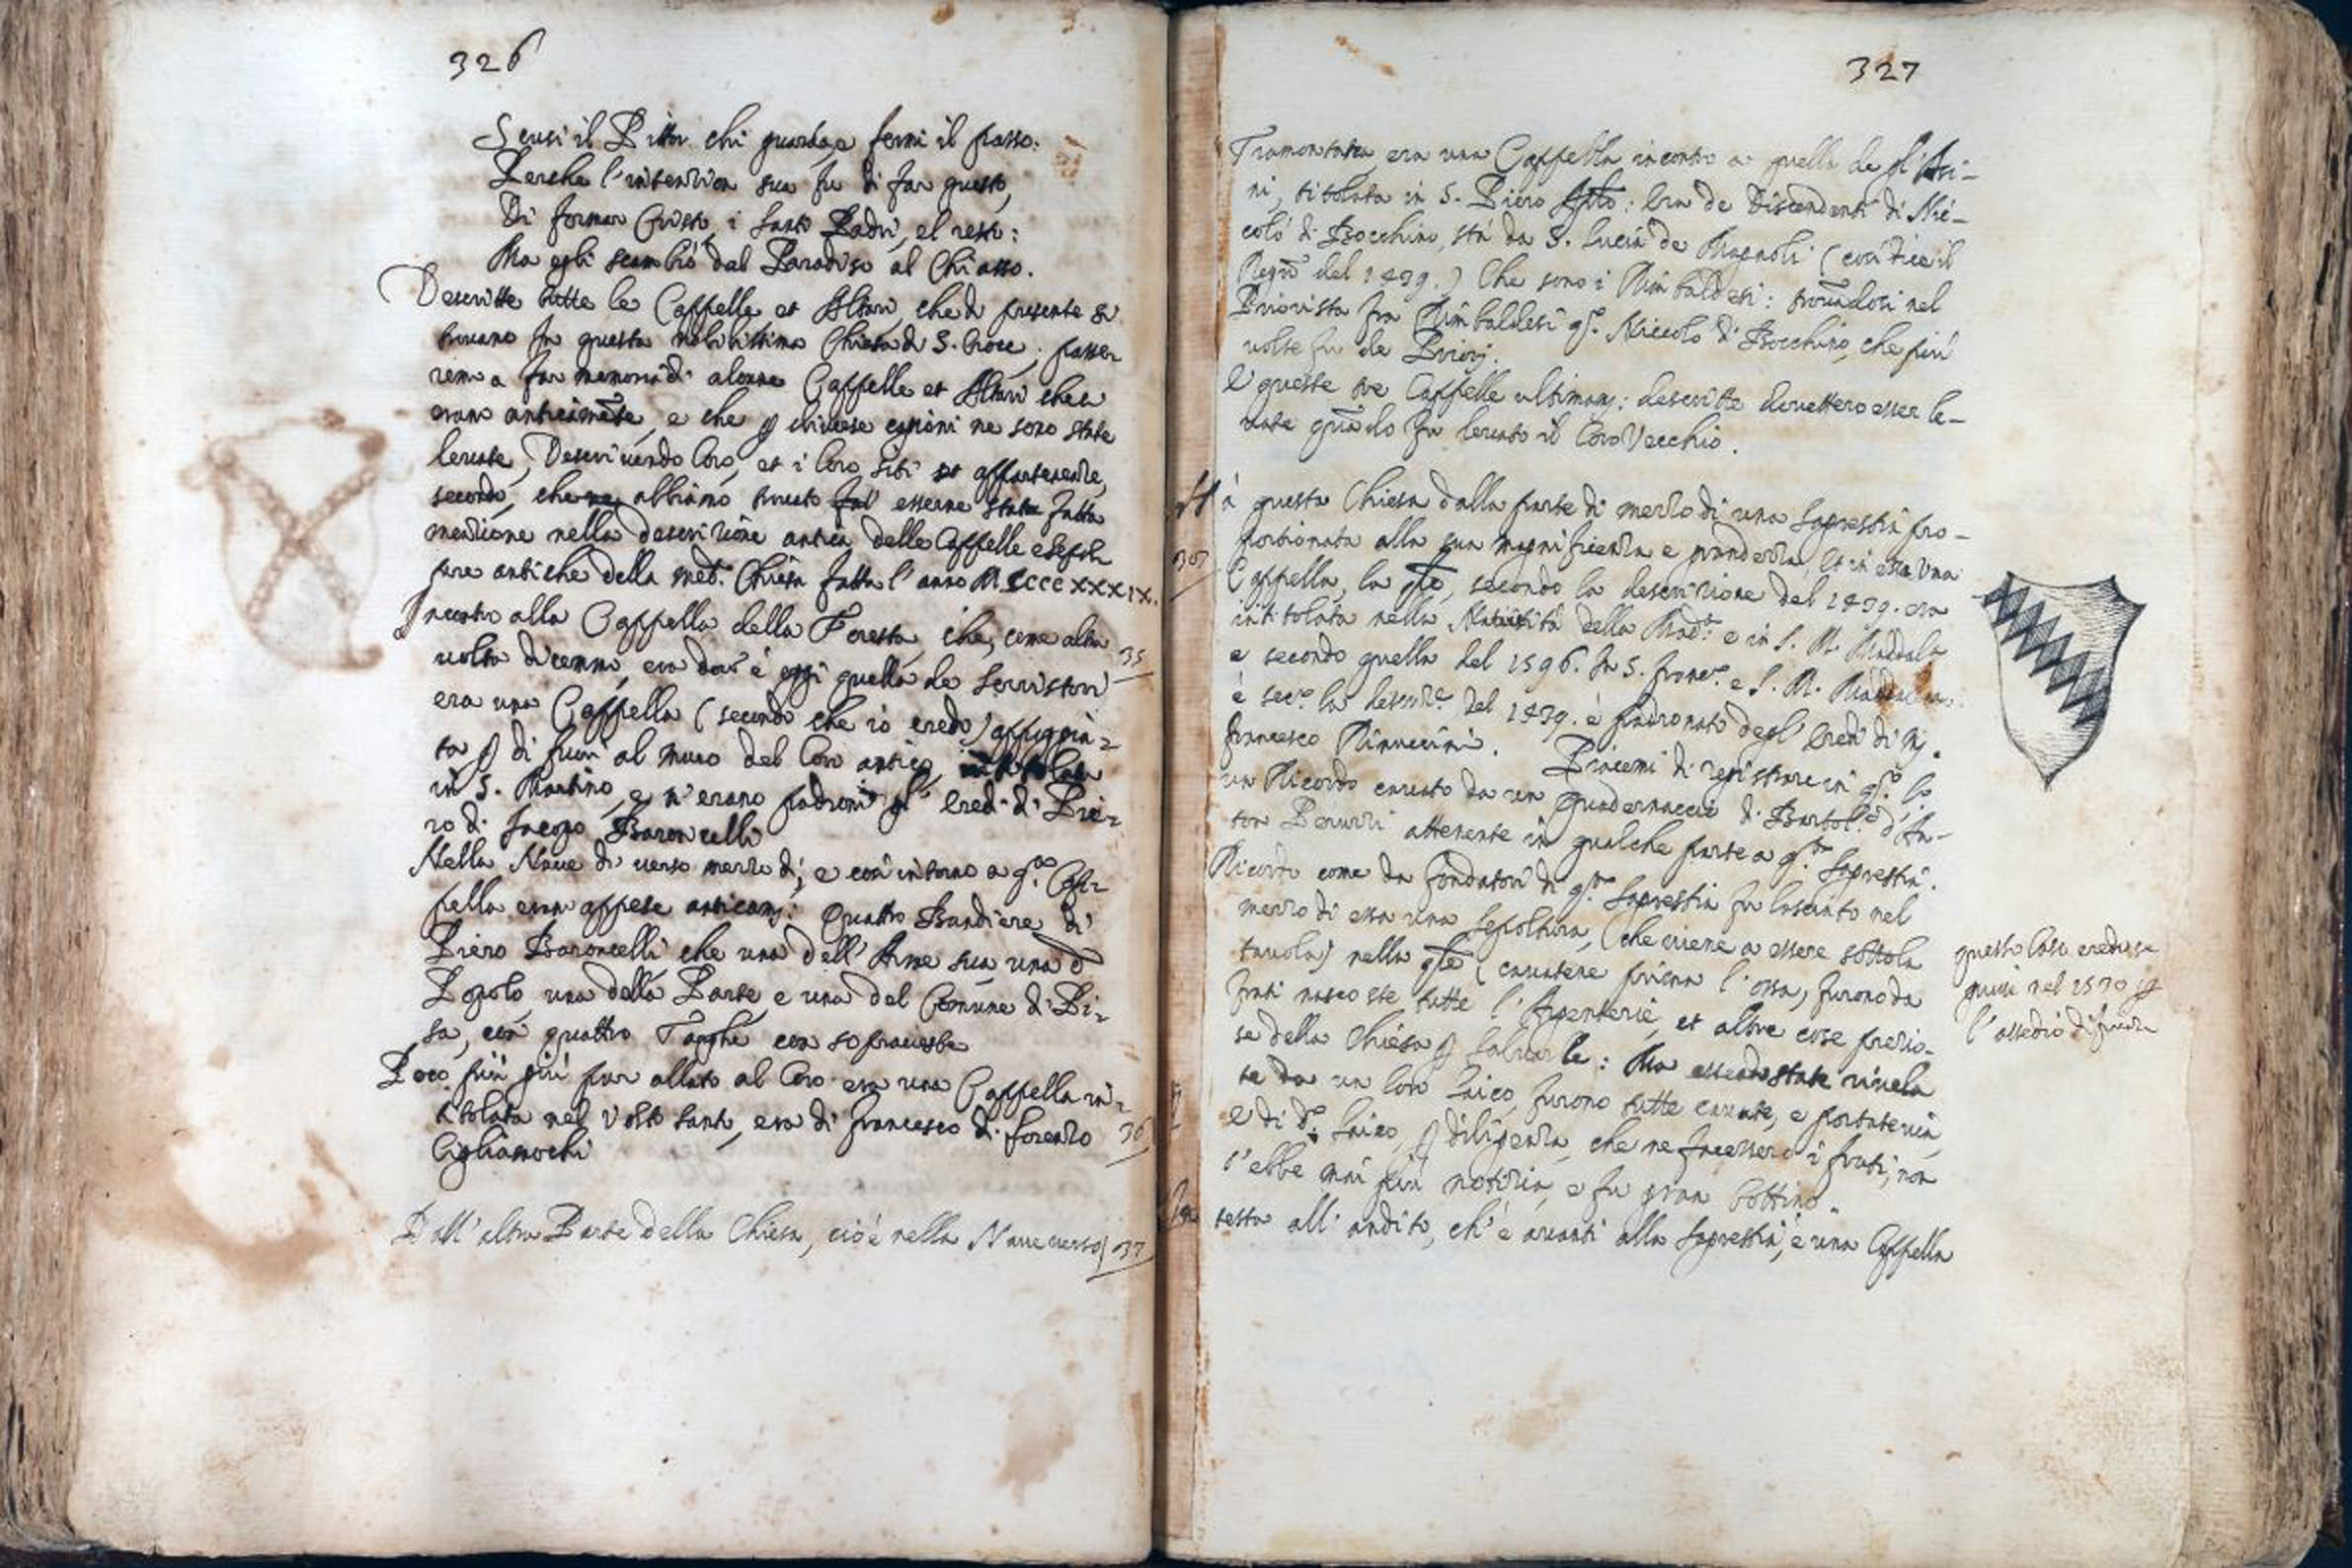 326
Scusi il Pittor chi guarda, e fermi il passo:
Perche l'intention sua fu di far questo,
Di formar Cristo, i Santi Padri, el resto:
Ma egli scambiò dal Paradiso al Chiasso.
Descritte tutte le Cappelle et Altari, che di presente si
trovano in questa nobilissima Chiesa di S. Croce; passe-
remo a far memoria di alcune Cappelle et Altari che vi
erano anticamẽte, e che p diverse cagioni ne sono state
levate, Descrivendo loro, et i loro siti et appartenenze,
secondo, che abbiamo trovato esserne stata fatta
menzione nella descrizione antica delle Cappelle e Sepol-
ture antiche della med.ª Chiesa fatta l'anno MCCCCXXXIX.
Incontro alla Cappella della Foresta, che, come altra
volta dicemmo, era dov'è oggi quella de Serristori 35
era una Cappella (secondo che io credo) appoggia-
ta p di fuori al muro del Coro antico, intitolata
in S. Martino, e n'erano padroni gl' Eredi di Pie-
ro di Jacopo Baroncelli
Nella Nave di verso mezzo dì, e così intorno a q.ª Cap-
pella eran appese anticamᵉ: quattro Bandiere di
Piero Baroncelli che una dell'Arme sua una d
Popolo, una della Parte, e una del Comune di Pi-
sa, con quattro Targhe con sopraveste
Poco più giù pur allato al Coro era una Cappella in-
titolata nel Volto Santo, era di Francesco di Lorenzo 36
Cigliamochi
Dall'altra Parte della Chiesa, cioè nella Nave verso 37
327
Tramontana, era una Cappella incontro a quella de gl'Asi-
ni, titolata in S. Piero Apto: Era de Discendenti di Nic-
colò di Bocchino, stà da S. Lucia de Magnoli (così dice il
Regrõ del 1439.) Che sono i Rimbaldesi: trovandosi nel
Priorista fra Rimbaldesi q.º Niccolo di Bocchino, che più
volte fu de Priori.
E queste tre Cappelle ultimamᵉ: descritte dovettero esser le-
vate quãdo fu levato il Coro Vecchio.
Hà questa Chiesa dalla parte di mezzo dì una Sagrestia pro-
porzionata alla sua magnificenza e grandezza, et in essa una
Cappella, la qlẽ, secondo la descrizione del 1439. era
intitolata nella Natività della Mad.ª e in S. M. Maddalª
e secondo quella del 1596. In S. Franc.º e S. M. Maddalena.
e sec.º la descriz.e del 1439. è padronato degl'Eredi di Mˢ.
Francesco Rinuccini. Piacemi di registrare in q.º lo
un Ricordo cavato da un quadernaccio di Bartol.º d'An-
ton Peruzzi attenente in qualche parte a q.ª Sagrestia.
Ricordo come da Fondatori di q.ª Sagrestia fu lasciato nel
mezzo di essa una sepoltura, (che viene a essere sotto la
tavola) nella qlẽ (cavatene prima l'ossa) furono da
frati nascoste tutte l'Argenterie, et altre cose prezio-
se della Chiesa p salvarle: Ma essendo state rivela
te da un lor laico, furono tutte cavate, e portate via,
e di d.º laico, p diligenza, che ne facessero i frati, non
s'ebbe mai più notizia, e fu gran bottino.
In testa all'andito, ch'è avanti alla Sagrestia, è una Cappella
questo Caso credo se
guisse nel 1530 p
l'assedio di firenze